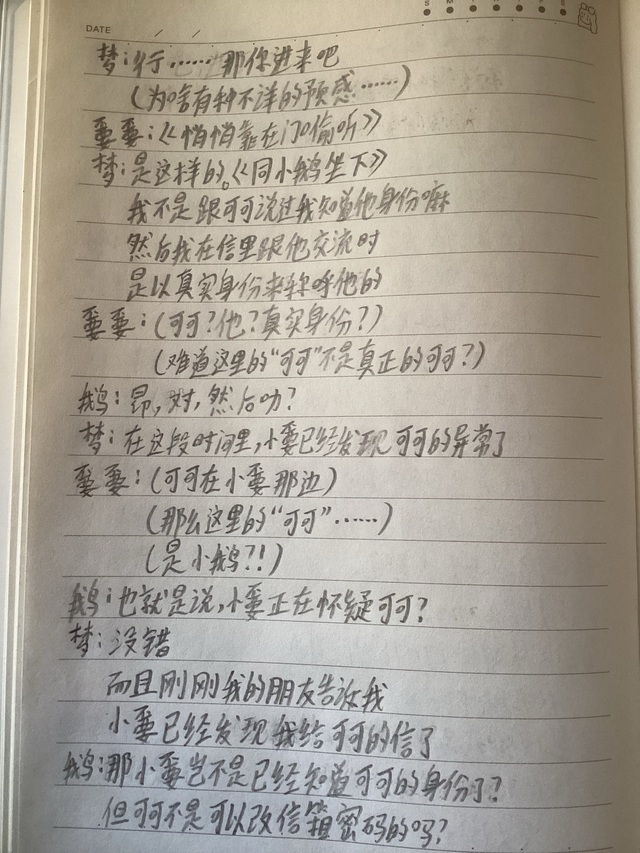 S M T W T F S
DATE / /
梦:行……那你进来吧
(为啥有种不详的预感……)
嫑嫑:《悄悄靠在门口偷听》
梦:是这样的。《同小鹅坐下》
我不是跟可可说过我知道他身份嘛
然后我在信里跟他交流时
是以真实身份来称呼他的
嫑嫑:(可可?他?真实身份?)
(难道这里的“可可”不是真正的可可?)
鹅:昂,对,然后叻?
梦:在这段时间里,小嫑已经发现可可的异常了
嫑嫑:(可可在小嫑那边)
(那么这里的“可可”……)
(是小鹅?!)
鹅:也就是说,小嫑正在怀疑可可?
梦:没错
而且刚刚我的朋友告诉我
小嫑已经发现我给可可的信了
鹅:那小嫑岂不是已经知道可可的身份了?
但可可不是可以改信箱密码的吗?